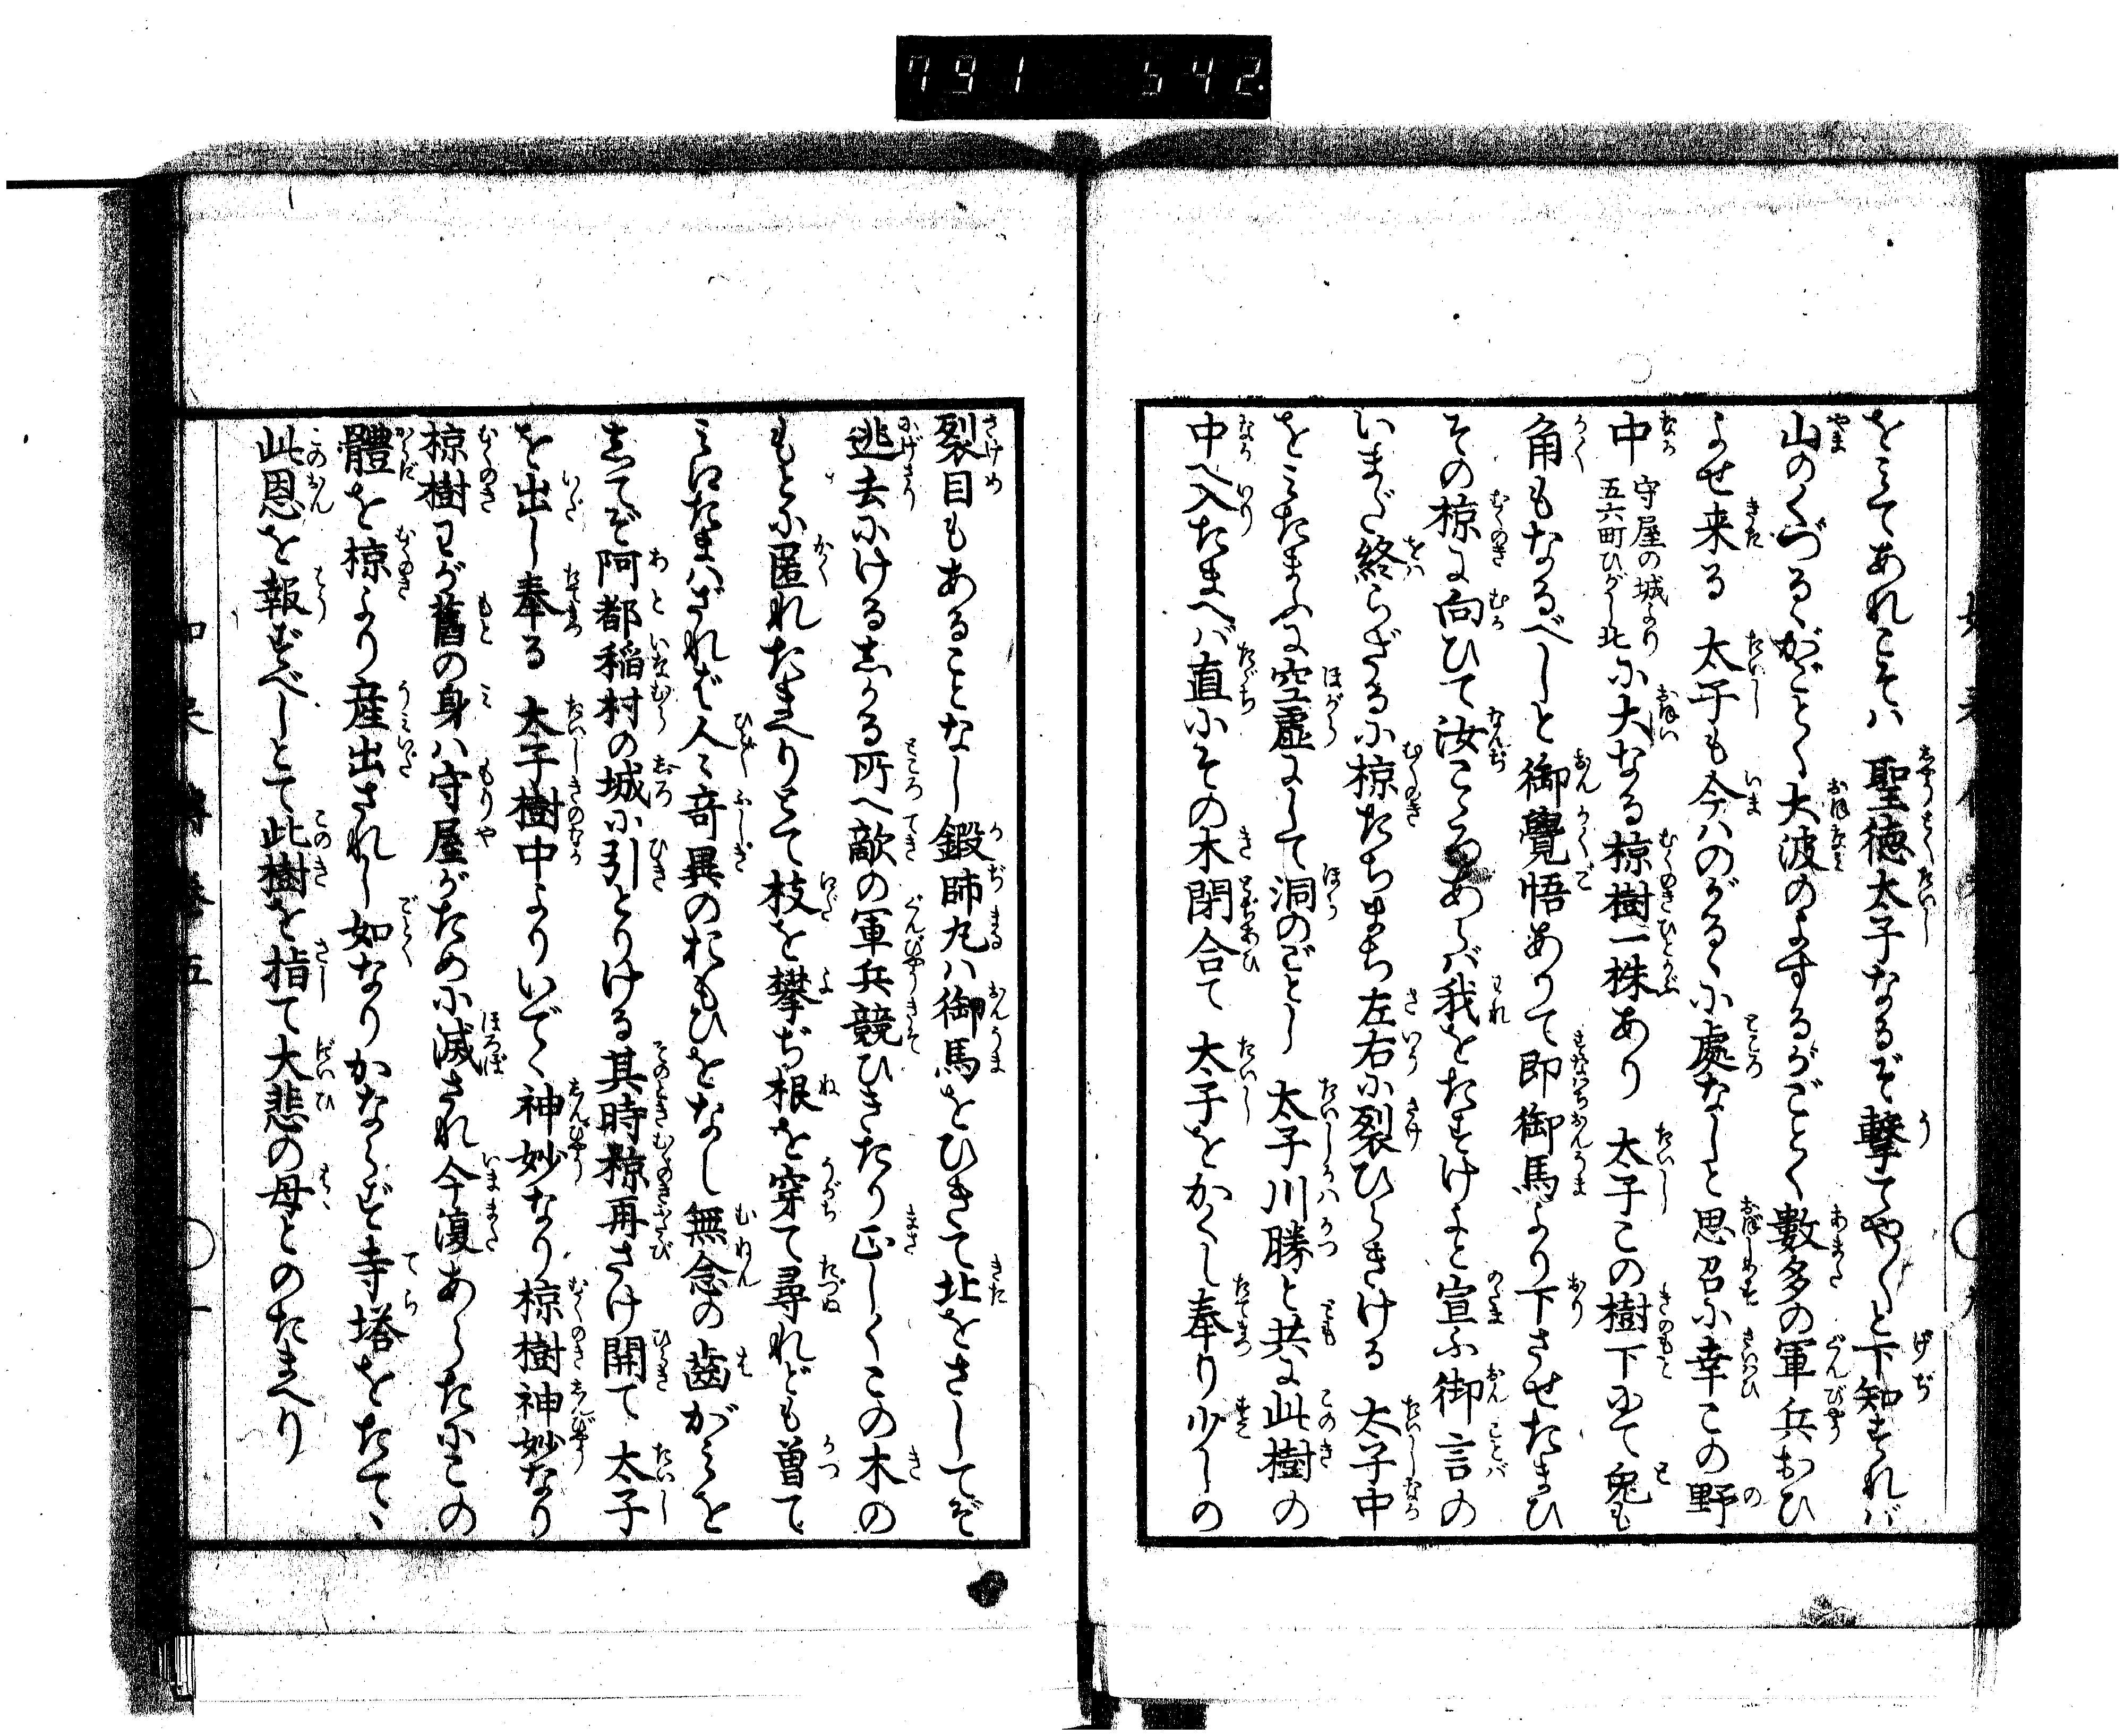 791 542.
をみてあれこそハ 聖徳太子なるぞ撃てやくと下知すれバ
山のくづるゝがごとく大波のよするがごとく數多の軍兵おひ
よせ来る 太子も今ハのがるゝ小處なしと思召小幸この野
中 守屋の城より五六町ひがし北 小大なる椋樹一株あり 太子この樹下にて兔も
角もなるべしと御覺悟ありて即御馬より下させたまひ
その椋に向ひて汝こゝろあらバ我をたすけよと宣ふ御言の
いまだ終らざる小椋たちまち左右小裂ひらきける 太子中
をみたまふに空虚にして洞のごとし 太子川勝と共に此樹の
中へ入たまへバ直小その木閉合て 太子をかくし奉り少しの
裂目もあることなし鍛師丸ハ御馬をひきて北をさしてぞ
逃去小ける志かる所へ敵の軍兵競ひきたり正しくこの木の
もと小匿れたまへりとて枝を攀ぢ根を穿て尋れども曽て
みえたまハざれば人〻奇異のおもひをなし無念の齒がみを
志てぞ阿都稲村の城小引とりける其時椋再さけ開て 太子
を出し奉る 太子樹中よりいでゝ神妙なり椋樹神妙なり
椋樹わが舊の身ハ守屋がため小滅され今復あらた小この
體を椋より産出されし如なりかならず寺塔をたてゝ
此恩を報ずべしとて此樹を指て大悲の母とのたまへり